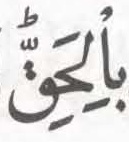 بِالْحَقِّؕ